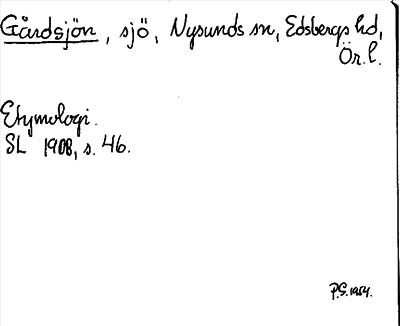 Gårdsjön, sjö, Nysunds sn, Edsbergs hd,
Ör. l.
Etymologi.
SL 1908, s. 46.
P.G. 1954.